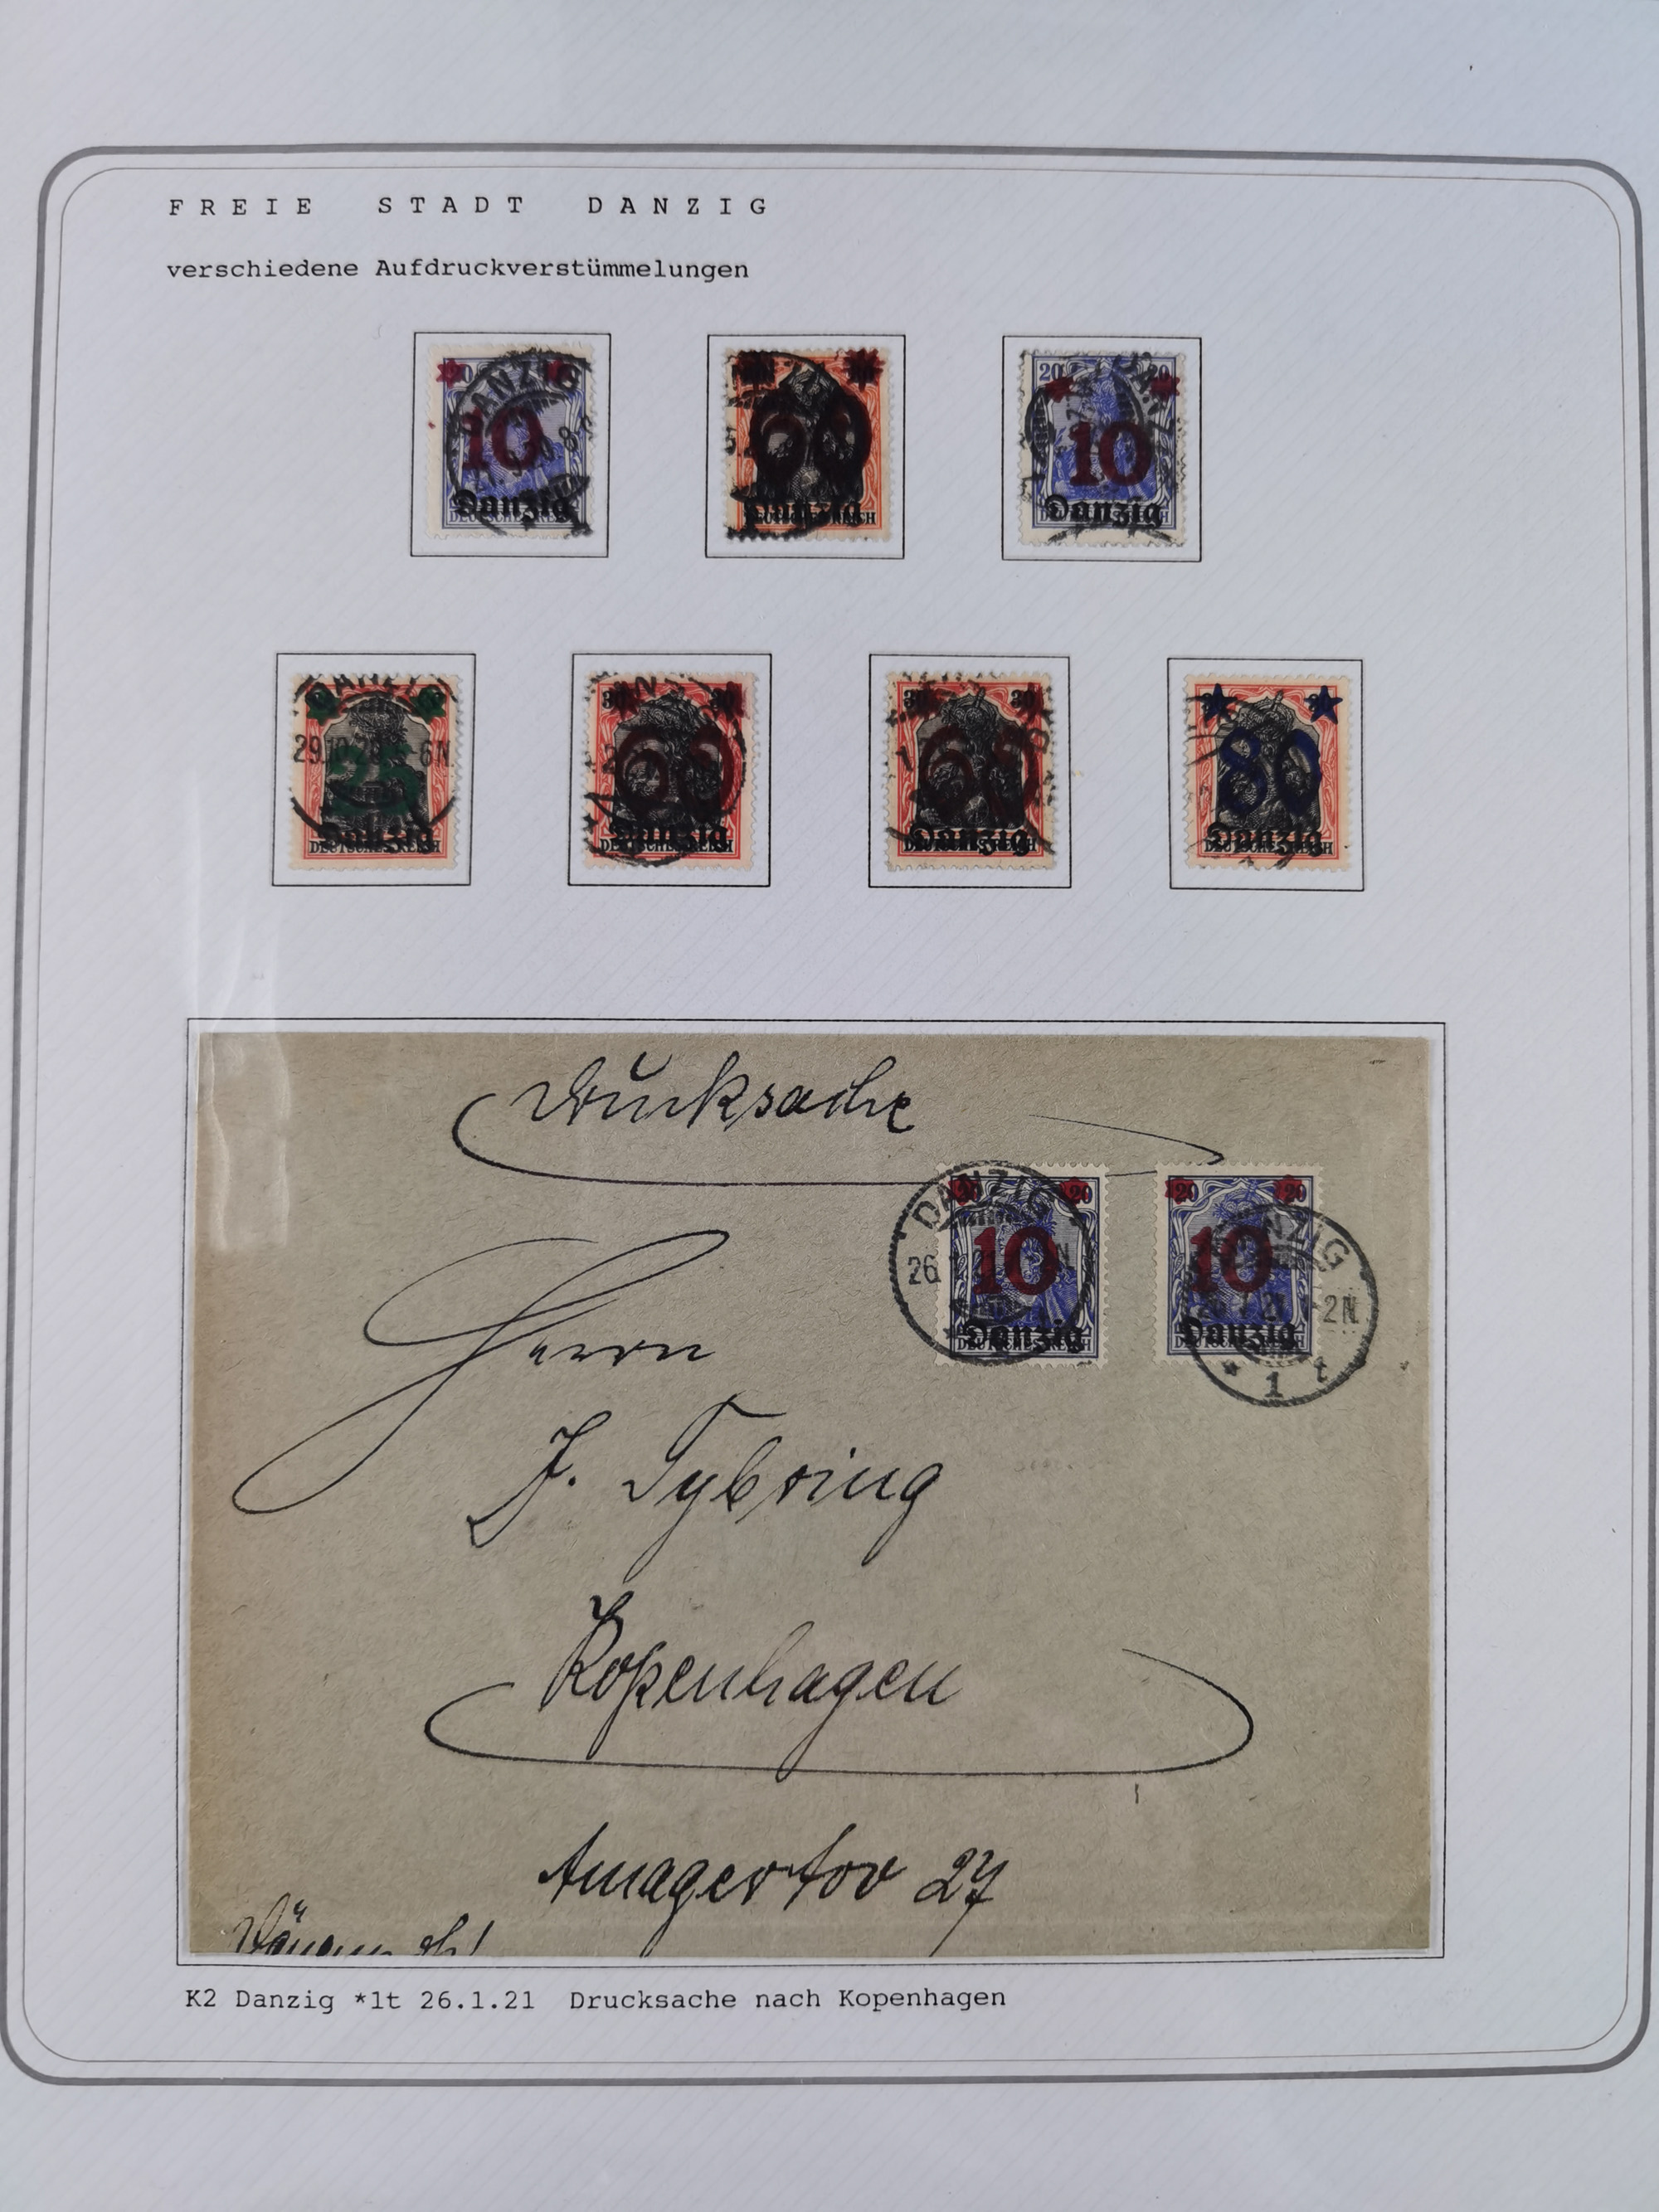 FREIE STADT DANZIG
verschiedene Aufdruckverstümmelungen
20
10
Danzig
60
Danzig
20 20
10
Danzig
29.10.20 6N
25
Danzig
DEUTSCHES REICH
30 30
60
Danzig
DEUTSCHES REICH
30 30
60
Danzig
DEUTSCHES REICH
80
Danzig
DEUTSCHES REICH
Drucksache
DANZIG
20 20
10
26
Danzig
DEUTSCHES REICH
20 20
10
2N
Danzig
DEUTSCHES REICH
* 1 t
Herrn
J. Tybring
Kopenhagen
Amagertov 27
K2 Danzig *1t 26.1.21 Drucksache nach Kopenhagen